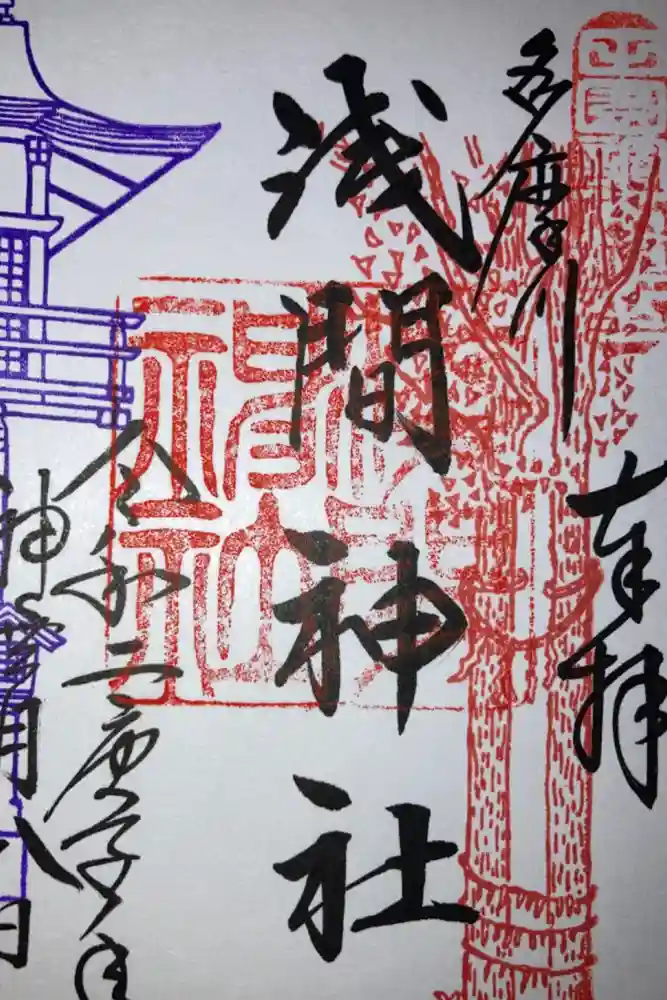 奉拝
多摩川
浅間神社
令和二庚子年
神無月八日